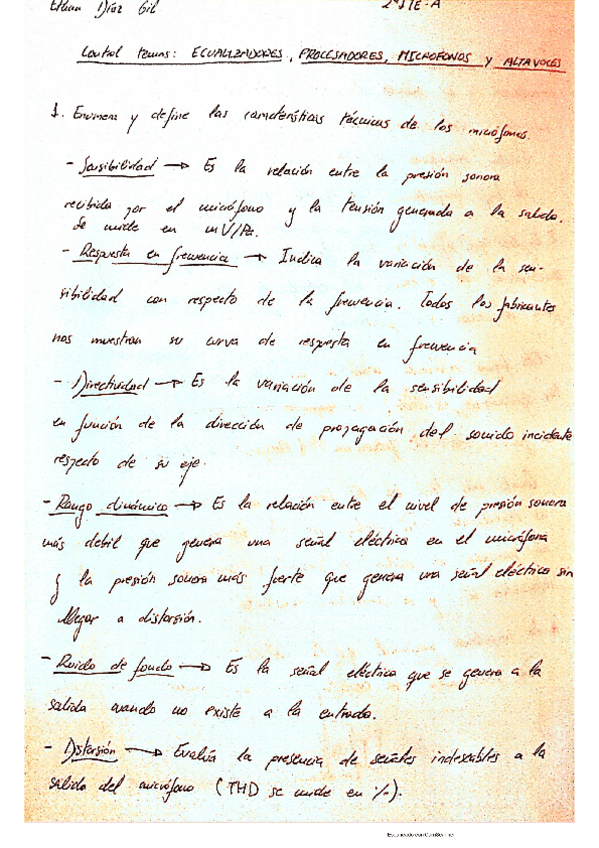 Ethan Díaz Gil 2º STE-A
Control temas: ECUALIZADORES, PROCESADORES, MICROFONOS y ALTAVOCES
1. Enumera y define las características técnicas de los micrófonos.
- Sensibilidad → Es la relación entre la presión sonora
recibida por el micrófono y la tensión generada a la salida.
Se mide en mV/Pa.
- Respuesta en frecuencia → Indica la variación de la sen-
sibilidad con respecto de la frecuencia. Todos los fabricantes
nos muestran su curva de respuesta en frecuencia
- Directividad → Es la variación de la sensibilidad
en función de la dirección de propagación del sonido incidente
respecto de su eje.
- Rango dinámico → Es la relación entre el nivel de presión sonora
más debil que genera una señal eléctrica en el micrófono
y la presión sonora más fuerte que genera una señal eléctrica sin
llegar a distorsión.
- Ruido de fondo → Es la señal eléctrica que se genera a la
salida cuando no existe a la entrada.
- Distorsión → Evalúa la presencia de señales indeseables a la
salida del micrófono (THD se mide en %).
Escaneado con CamScanner